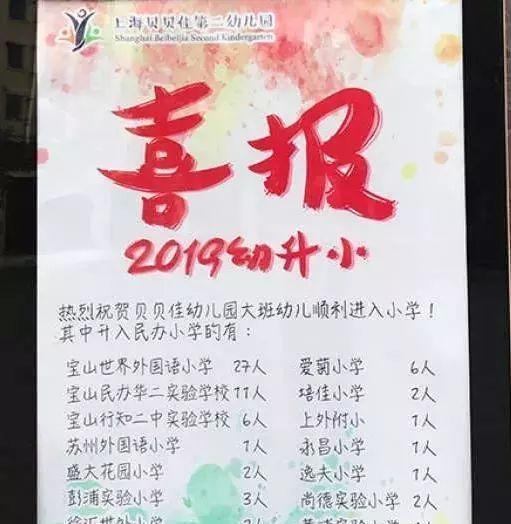 上海贝贝佳第二幼儿园
Shanghai Beibeijia Second Kindergarten
喜报
2019幼升小
热烈祝贺贝贝佳幼儿园大班幼儿顺利进入小学！
其中升入民办小学的有：
宝山世界外国语小学 27人 爱菊小学 6人
宝山民办华二实验学校 11人 培佳小学 2人
宝山行知二中实验学校 6人 上外附小 1人
苏州外国语小学 1人 永昌小学 1人
盛大花园小学 2人 逸夫小学 1人
彭浦实验小学 3人 尚德实验小学 2人